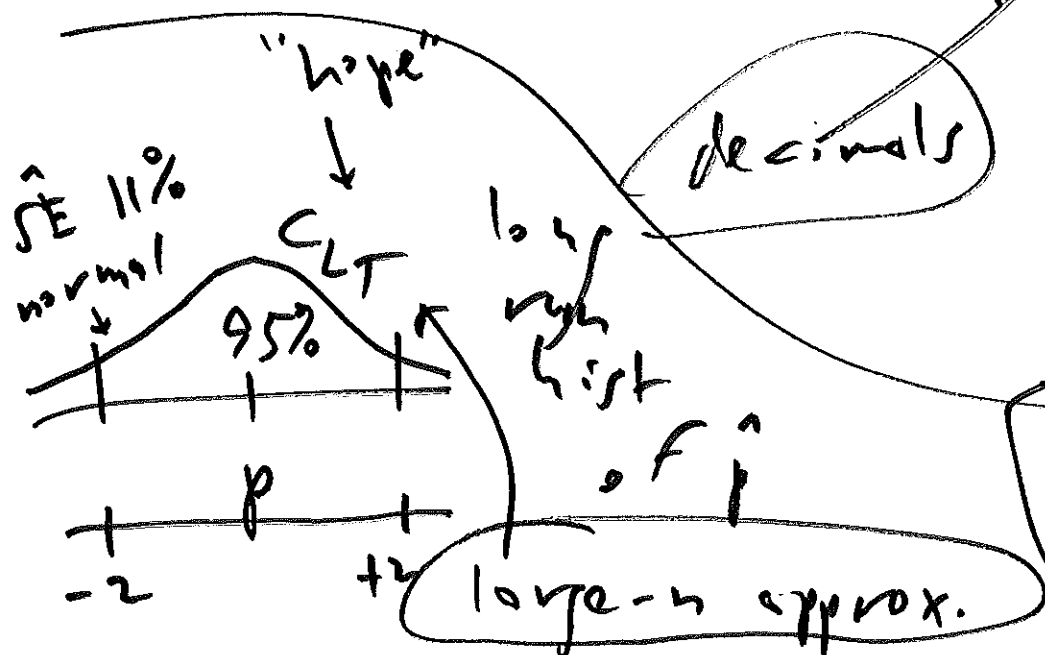 "hope"
decimals
ŜE 11%
normal
CLT
95%
long
run
hist
of p̂
p
-2
+2
large-n approx.